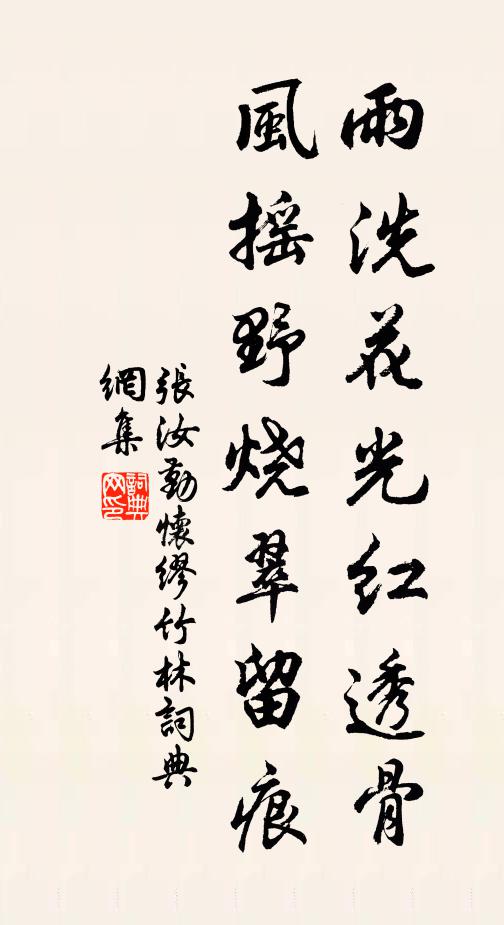 雨洗花光红透骨
風摇野烧翠留痕
張汝勤懷缪竹林詞典
網集
詞典
网印